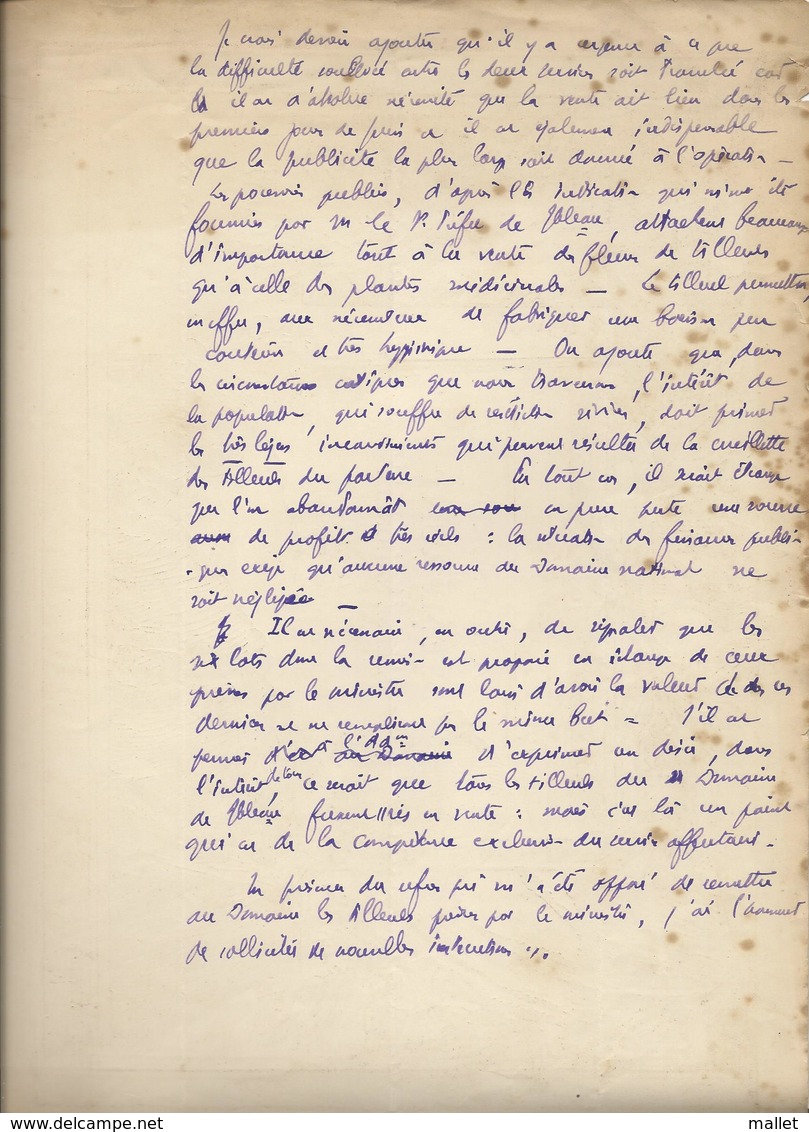 Je crois devoir ajouter qu'il y a urgence à ce que
la difficulté soulevée entre les deux services soit tranchée car
il est d'absolue nécessité que la vente ait lieu dans les
premiers jours de juin et il est également indispensable
que la publicité la plus large soit donnée à l'opération —
Les pouvoirs publics, d'après les indications qui m'ont été
fournies par M le S. Préfet de Fbleau, attachent beaucoup
d'importance tant à la vente des fleurs de tilleuls
qu'à celle des plantes médicinales — Le tilleul permettra,
en effet, aux nécessiteux de fabriquer une boisson peu
coûteuse et très hygiénique — On ajoute que, dans
les circonstances critiques que nous traversons, l'intérêt de
la population, qui souffre de restrictions sévères, doit primer
les très légers inconvénients qui peuvent résulter de la cueillette
des tilleuls du parterre — En tout cas, il serait étrange
que l'on abandonnât en pure perte une source
de profits très réels : la situation des finances publi-
-ques exige qu'aucune ressource du Domaine national ne
soit négligée —
Il est nécessaire, en outre, de signaler que les
six lots dont la remise est proposée en échange de ceux
prévus par le ministre sont loin d'avoir la valeur de ces
derniers et ne remplissent pas le même but = S'il est
permis à l'Adon d'exprimer un désir, dans
l'intérêt de l'Etat, ce serait que tous les tilleuls du Domaine
de Fbleau fussent mis en vente : mais c'est là un point
qui est de la compétence exclusive du service affectataire.
En présence du refus qui m'a été opposé de remettre
au Domaine les tilleuls prévus par le ministre, j'ai l'honneur
de solliciter de nouvelles instructions ./.
mallet